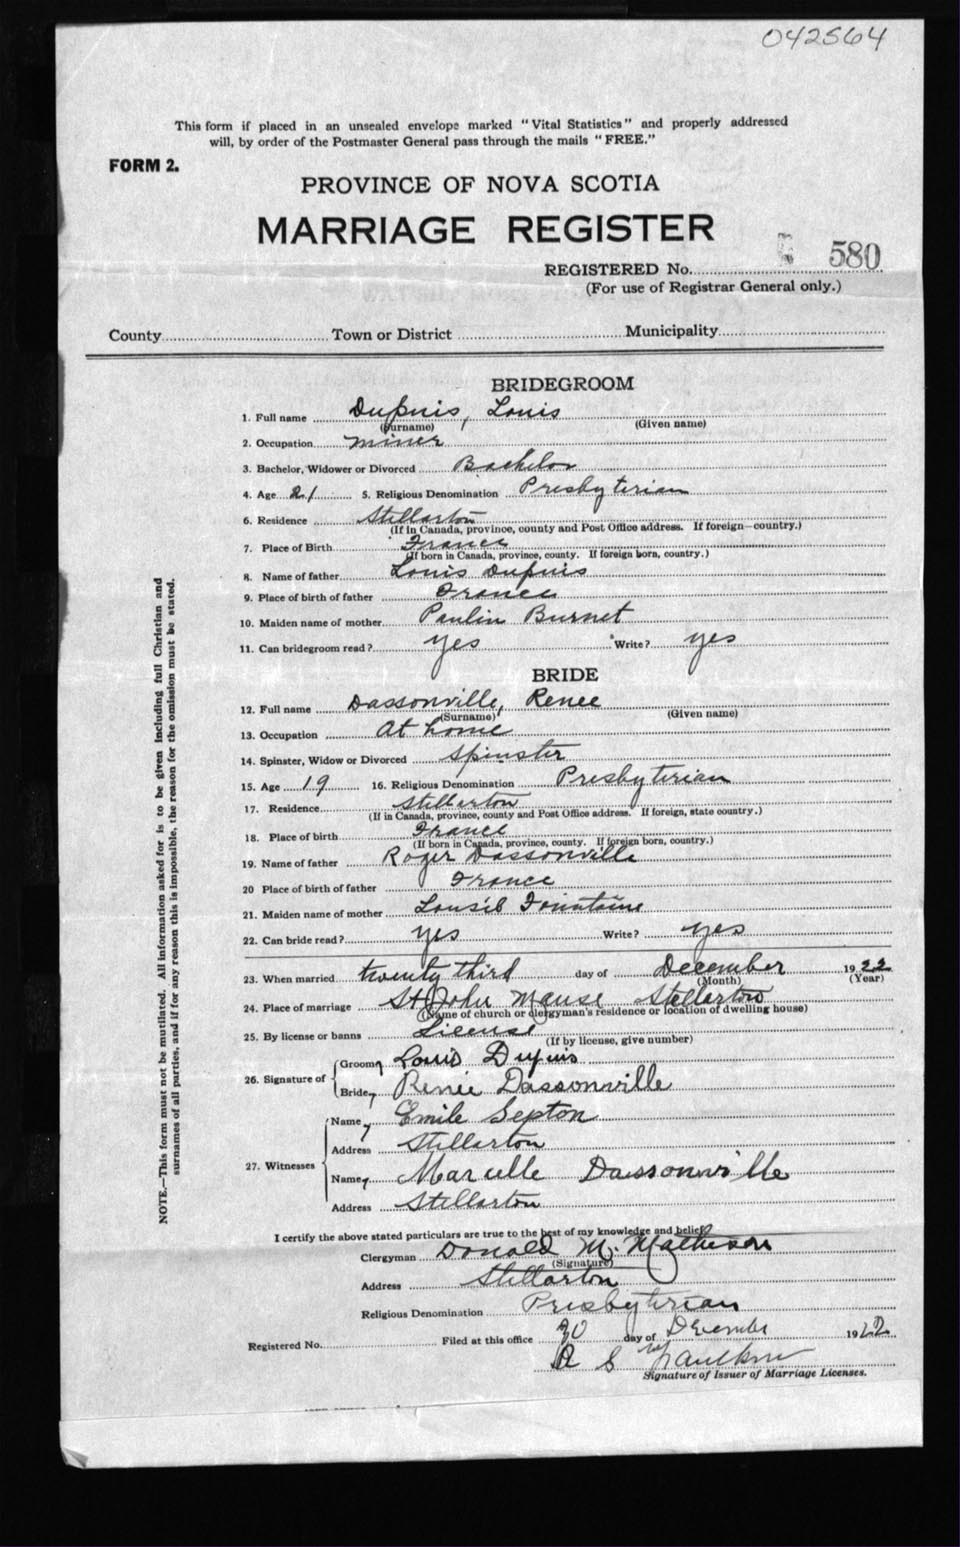 042564
This form if placed in an unsealed envelope marked "Vital Statistics" and properly addressed
will, by order of the Postmaster General pass through the mails "FREE."
FORM 2.
PROVINCE OF NOVA SCOTIA
MARRIAGE REGISTER
REGISTERED No. 580
(For use of Registrar General only.)
County Town or District Municipality
BRIDEGROOM
1. Full name Dupuis, Louis
(Surname) (Given name)
2. Occupation miner
3. Bachelor, Widower or Divorced Bachelor
4. Age 21 5. Religious Denomination Presbyterian
6. Residence Stellarton
(If in Canada, province, county and Post Office address. If foreign—country.)
7. Place of Birth France
(If born in Canada, province, county. If foreign born, country.)
8. Name of father Louis Dupuis
9. Place of birth of father France
10. Maiden name of mother Paulin Burnet
11. Can bridegroom read? yes Write? yes
BRIDE
12. Full name Dassonville, Renee
(Surname) (Given name)
13. Occupation At home
14. Spinster, Widow or Divorced Spinster
15. Age 19 16. Religious Denomination Presbyterian
17. Residence Stellarton
(If in Canada, province, county and Post Office address. If foreign, state country.)
18. Place of birth France
(If born in Canada, province, county. If foreign born, country.)
19. Name of father Roger Dassonville
20 Place of birth of father France
21. Maiden name of mother Fountaine
22. Can bride read? yes Write? yes
23. When married twenty third day of December 1922
(Month) (Year)
24. Place of marriage St John Manse Stellarton
(Name of church or clergyman's residence or location of dwelling house)
25. By license or banns License
(If by license, give number)
26. Signature of Groom Louis Dupuis
Bride Renée Dassonville
27. Witnesses Name Emile Septon
Address Stellarton
Name Marcelle Dassonville
Address Stellarton
I certify the above stated particulars are true to the best of my knowledge and belief
Clergyman Donald M. Matheson
(Signature)
Address Stellarton
Religious Denomination Presbyterian
Registered No. Filed at this office 30 day of December 1922
Signature of Issuer of Marriage Licenses.
NOTE.—This form must not be mutilated. All information asked for is to be given including full Christian and
surnames of all parties, and if for any reason this is impossible, the reason for the omission must be stated.